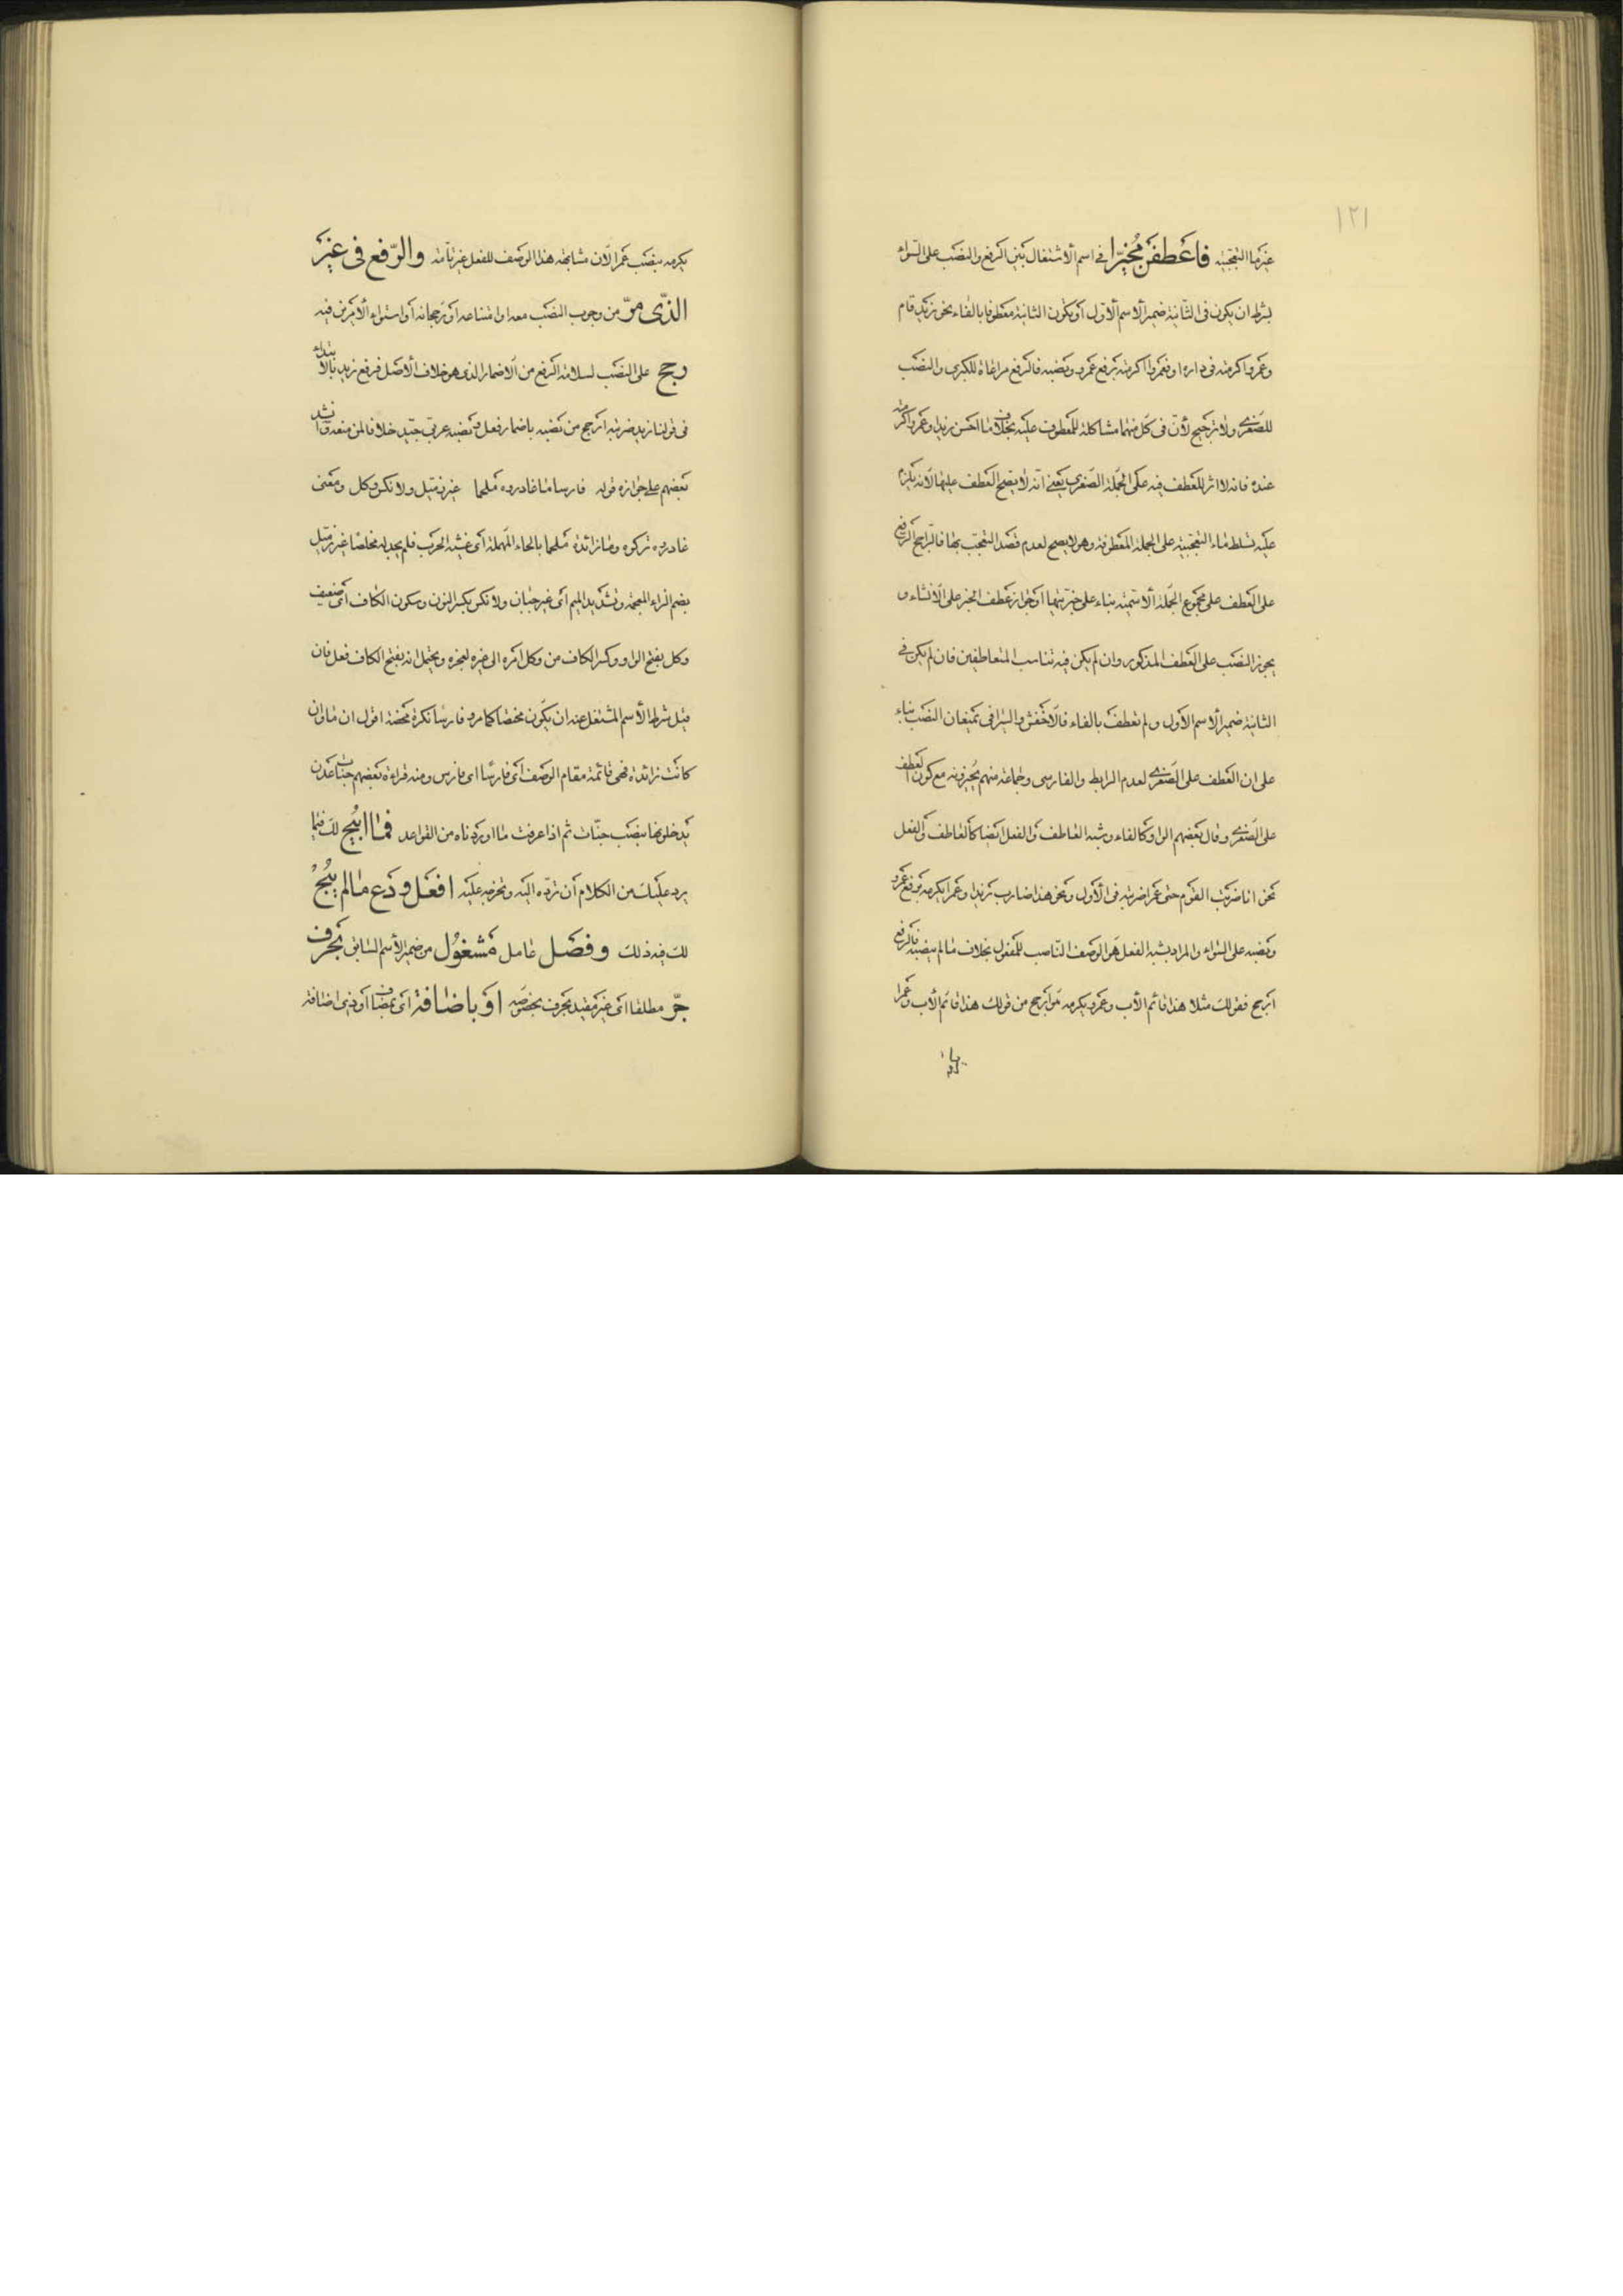 ١٢١
غير ما التعجبية فاعطفن مخيرا في اسم الاشتغال بين الرفع والنصب على السواء
بشرط ان يكون فى الثانية ضمير الاسم الاول او يكون الثانية معطوفا بالفاء نحو زيد قام
وعمروا اكرمته فى داره او فعمروا اكرمته برفع عمرو ونصبه فالرفع مراعاة للكبرى والنصب
للصغرى ولا ترجيح لأن فى كل منهما مشاكلة للمعطوف عليه بخلاف ما احسن زيدا وعمروا اكرمته
عنده فانه لا اثر للعطف فيه على الجملة الصغرى يعنى انه لا يصح العطف عليها لانه يلزم
عليه تسلط ماء التعجبية على الجملة المعطوفة وهو لا يصح لعدم قصد التعجب بها فالراجح الرفع
على العطف على مجموع الجملة الاسمية بناء على خبريتها او جواز عطف الخبر على الانشاء و
يجوز النصب على العطف المذكور وان لم يكن فيه تناسب المتعاطفين فان لم يكن فى
الثانية ضمير الاسم الاول ولم تعطف بالفاء فالاخفش والسيرافى يمنعان النصب بناء
على ان العطف على الصغرى لعدم الرابط والفارسى وجماعة منهم يجيزونه مع كون العطف
على الصغرى وقال بعضهم الواو كالفاء وشبه العاطف والفعل ايضا كالعاطف والفعل
نحو انا ضربت القوم حتى عمرا ضربته فى الاول ونحو هذا ضارب زيدا وعمرا يكرمه برفع عمرو
ونصبه على السواء والمراد بشبه الفعل هو الوصف الناصب للمفعول بخلاف ما لم ينصبه فالرفع
ارجح فقولك مثلا هذا قائم الأب وعمرو يكرمه هو ارجح من قولك هذا قائم الأب وعمرا
يكرمه بنصب عمرا لان مشابهة هذا الوصف للفعل غير تامة والرفع فى غير
الذى مر من وجوب النصب معه او امتناعه او رجحانه او استواء الأمرين فيه
رجح على النصب لسلامة الرفع من الاضمار الذى هو خلاف الأصل فرفع زيد بالابتداء
فى قولنا زيد ضربته ارجح من نصبه باضمار فعل ونصبه عربى جيد خلافا لمن منعه وانشد
بعضهم على جوازه قوله فارسا ما غادروه ملحما غير زميل ولا نكس وكل ومعنى
غادروه تركوه وما زائدة ملحما بالحاء المهملة اى غشيه الحرب فلم يجد له مخلصا غير زميل
بضم الزاء المعجمة وتشديد الميم اى غير جبان ولا نكس بكسر النون وسكون الكاف اى ضعيف
وكل بفتح الواو وكسر الكاف من وكل امره الى غيره لعجزه ويحتمل انه بفتح الكاف فعل فان
قيل شرط الأسم المشتغل عنه ان يكون مختصا كما مر وفارسا نكرة محضة اقول ان ما وان
كانت زائدة فهى قائمة مقام الوصف اى فارسا اى فارس ومنه قراءة بعضهم جنات عدن
يدخلونها بنصب جنات ثم اذا عرفت ما اوردناه من القواعد فما ابيح لك فيما
يرد عليك من الكلام ان تردّه اليه وتخرجه عليه افعل ودع ما لم يبح
لك فيه ذلك وفصل عامل مشغول من ضمير الأسم السابق بحرف
جرّ مطلقا اى غير مقيد بحرف يخصّه او باضافة اى بمضاف او ذى اضافة